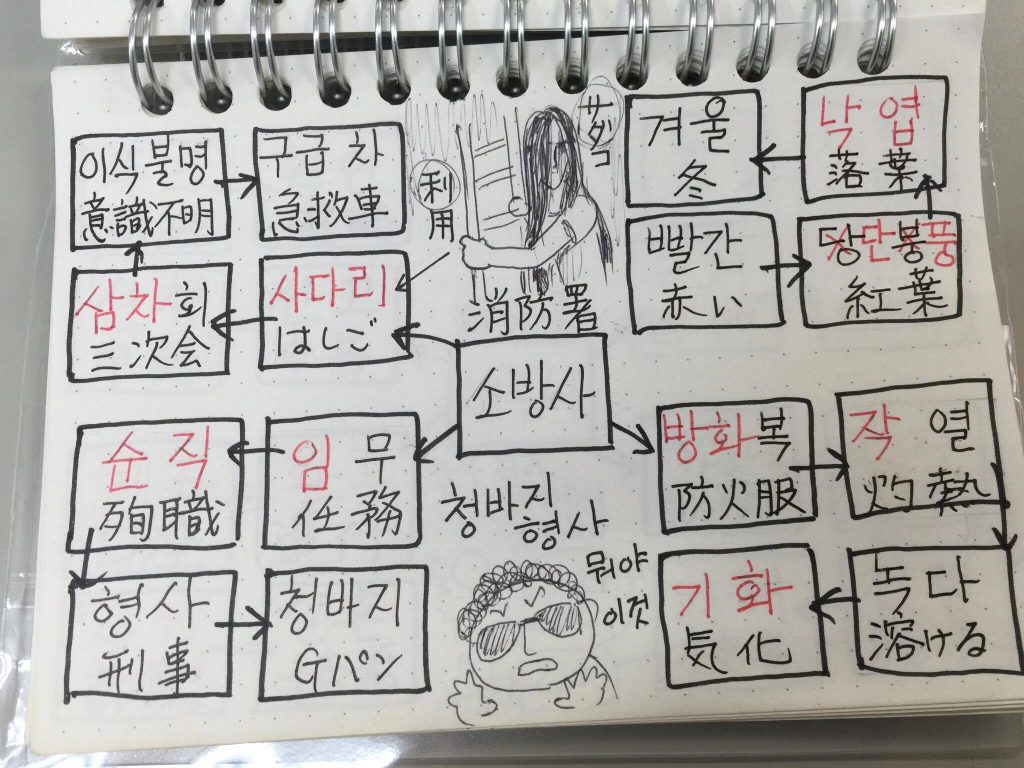 이식불명
意識不明
구급차
急救車
利用
サダコ
겨울
冬
낙엽
落葉
삼차회
三次会
사다리
はしご
消防署
빨간
赤い
당단봉풍
紅葉
소방사
순직
殉職
임무
任務
방화복
防火服
작열
灼熱
청바지
형사
뭐야
이것
형사
刑事
청바지
Gパン
기화
気化
녹다
溶ける